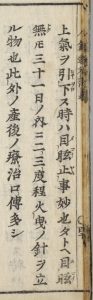 上氣ヲ引下ス時ハ目眩止事妙也タトヘ目眩
無𪜈三十一日ノ内ニ二三度程火曳ノ針ヲ立
ル物也此外ノ産後ノ療治口傳多シ